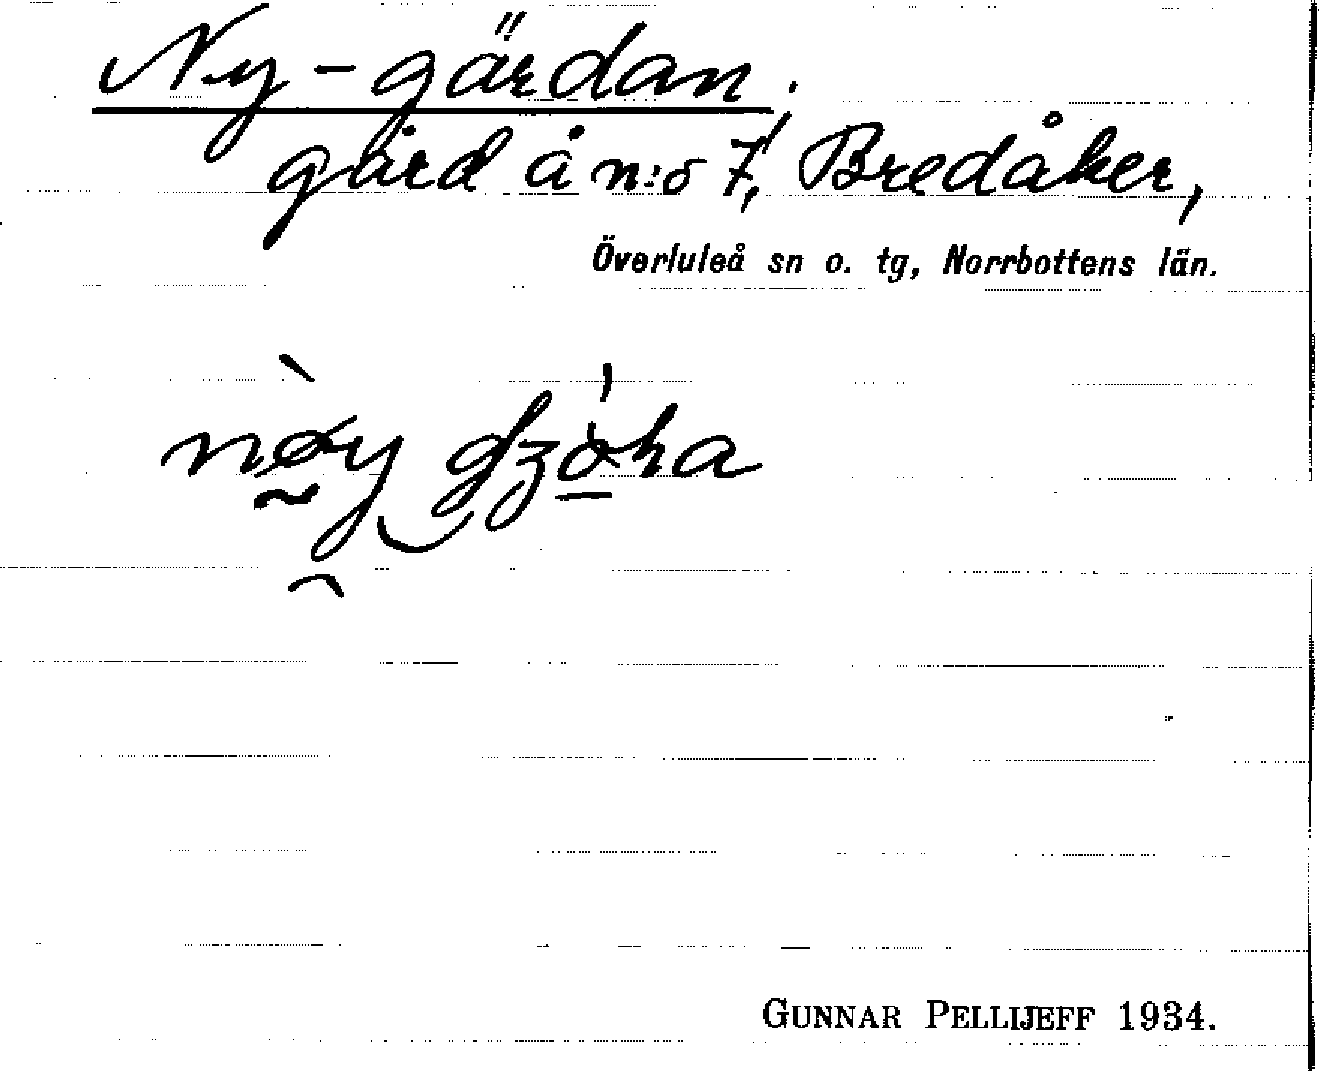 Ny-gärdan,
gård å n:o 7, Bredåker,
Överluleå sn o. tg, Norrbottens län.
GUNNAR PELLIJEFF 1934.